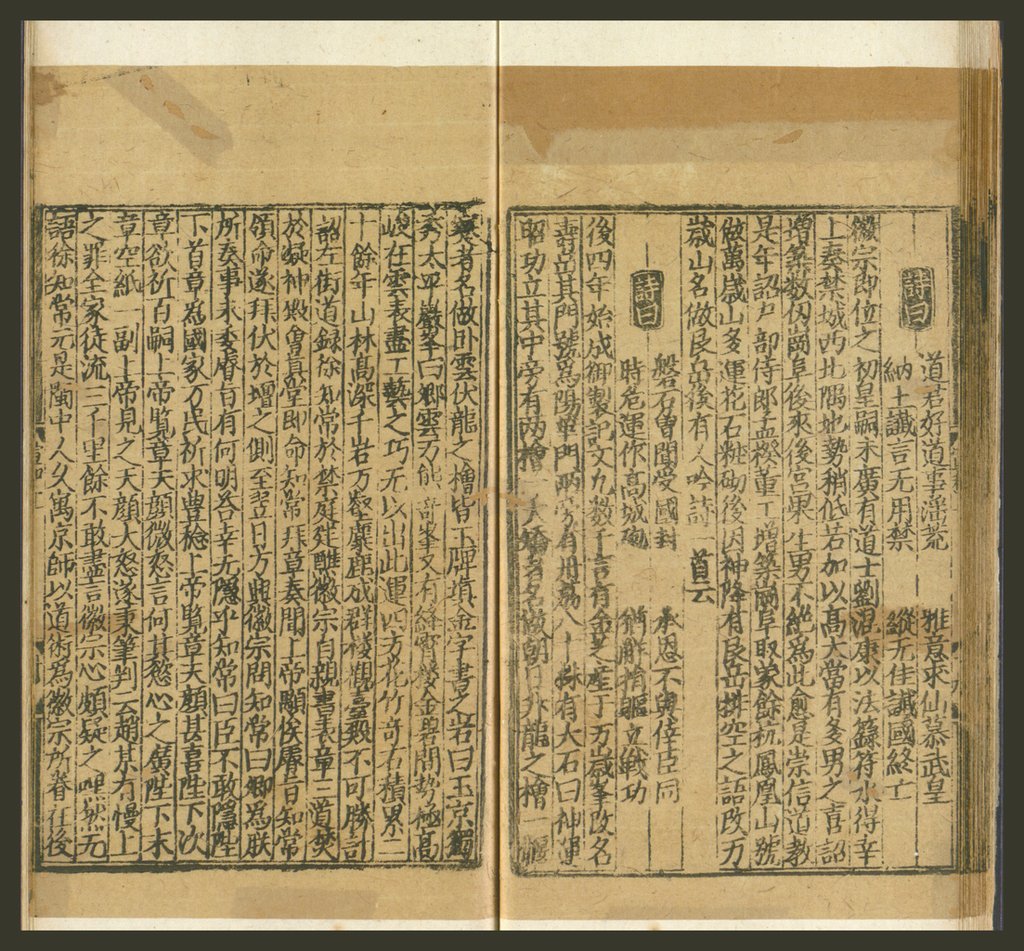 詩曰
道君好道事淫荒　雅意求仙慕武皇
納土讖言无用禁　縱无佳讖國終亡
徽宗即位之初皇嗣未廣有道士劉混康以法籙符水得幸
上奏禁城西北隅地勢稍低若加以高大當有多男之喜詔
增築數仞崗阜後來後宮果生男不絶爲此愈甚崇信道教
是年詔戶部侍郎孟揆董工增築崗阜取象餘杭鳳凰山號
做萬歲山多運花石粧砌後因神降有艮岳排空之語改万
歲山名做艮岳後有人吟詩一首云
詩曰
磐石曽聞受國封　承恩不與倖臣同
時危運作高城砲　猶解捐軀立戰功
後四年始成御製記文九數千言有金芝産于万歲峯改名
壽岳其門號爲陽華門兩旁有丹荔八十株有大石曰神運
昭功立其中旁有两檜一夭矯者名做朝日升龍之檜一偃
蹇者名做卧雲伏龍之檜皆玉牌填金字書之岩曰玉京獨
秀太平巖峯曰卿雲万態奇峯又有絳霄樓金碧間勢極高
峻在雲表盡工藝之巧无以出此運四方花竹奇石積累二
十餘年山林高深千岩万壑麋鹿成群楼觀臺殿不可勝計
詔左街道録徐知常於禁庭建醮徽宗自親書表章二道焚
於凝神殿會真堂即命知常拜章奏聞上帝顒俟睿旨知常
領命遂拜伏於壇之側至翌日方興徽宗問知常曰卿爲朕
所奏事未委睿旨有何明答幸无隱乎知常曰臣不敢隱陛
下首章爲國家万民祈求豊稔上帝覧章天顔甚喜陛下次
章欲祈百嗣上帝覧章天顔微怒言何其慾心之廣陛下末
章空紙一副上帝見之天顔大怒遂秉筆判云趙某有慢上
之罪全家徒流三千里餘不敢盡言徽宗心頗疑之唯獣无
語徐知常元是閩中人久寓京師以道術爲徽宗所眷在後